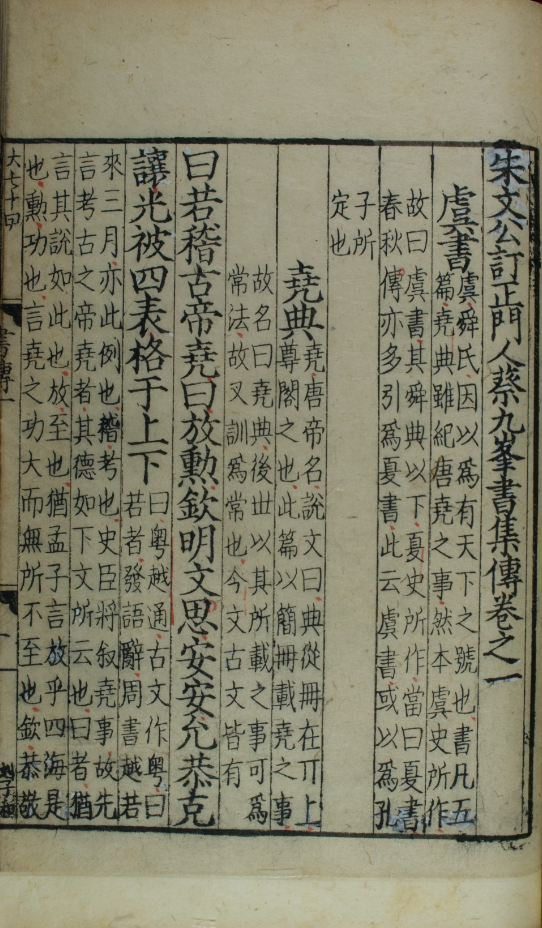 朱文公訂正門人蔡九峯書集傳卷之一
虞書
虞舜氏因以爲有天下之號也書凡五
篇堯典雖紀唐堯之事然本虞史所作
故曰虞書其舜典以下夏史所作當曰夏書
春秋傳亦多引爲夏書此云虞書或以爲孔
子所
定也
堯典
堯唐帝名說文曰典從冊在丌上
尊閣之也此篇以簡冊載堯之事
故名曰堯典後世以其所載之事可爲
常法故又訓爲常也今文古文皆有
曰若稽古帝堯曰放勳欽明文思安安允恭克
讓光被四表格于上下
曰粤越通古文作粤曰
若者發語辭周書越若
來三月亦此例也稽考也史臣將叙堯事故先
言考古之帝堯者其德如下文所云也曰者猶
言其說如此也放至也猶孟子言放乎四海是
也勳功也言堯之功大而無所不至也欽恭敬
大七十四
書傳一